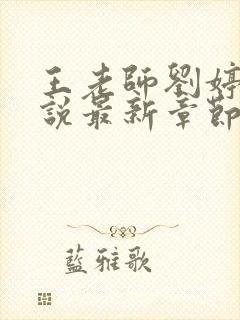 王老師劉婷
說最新章節
藍雅歌